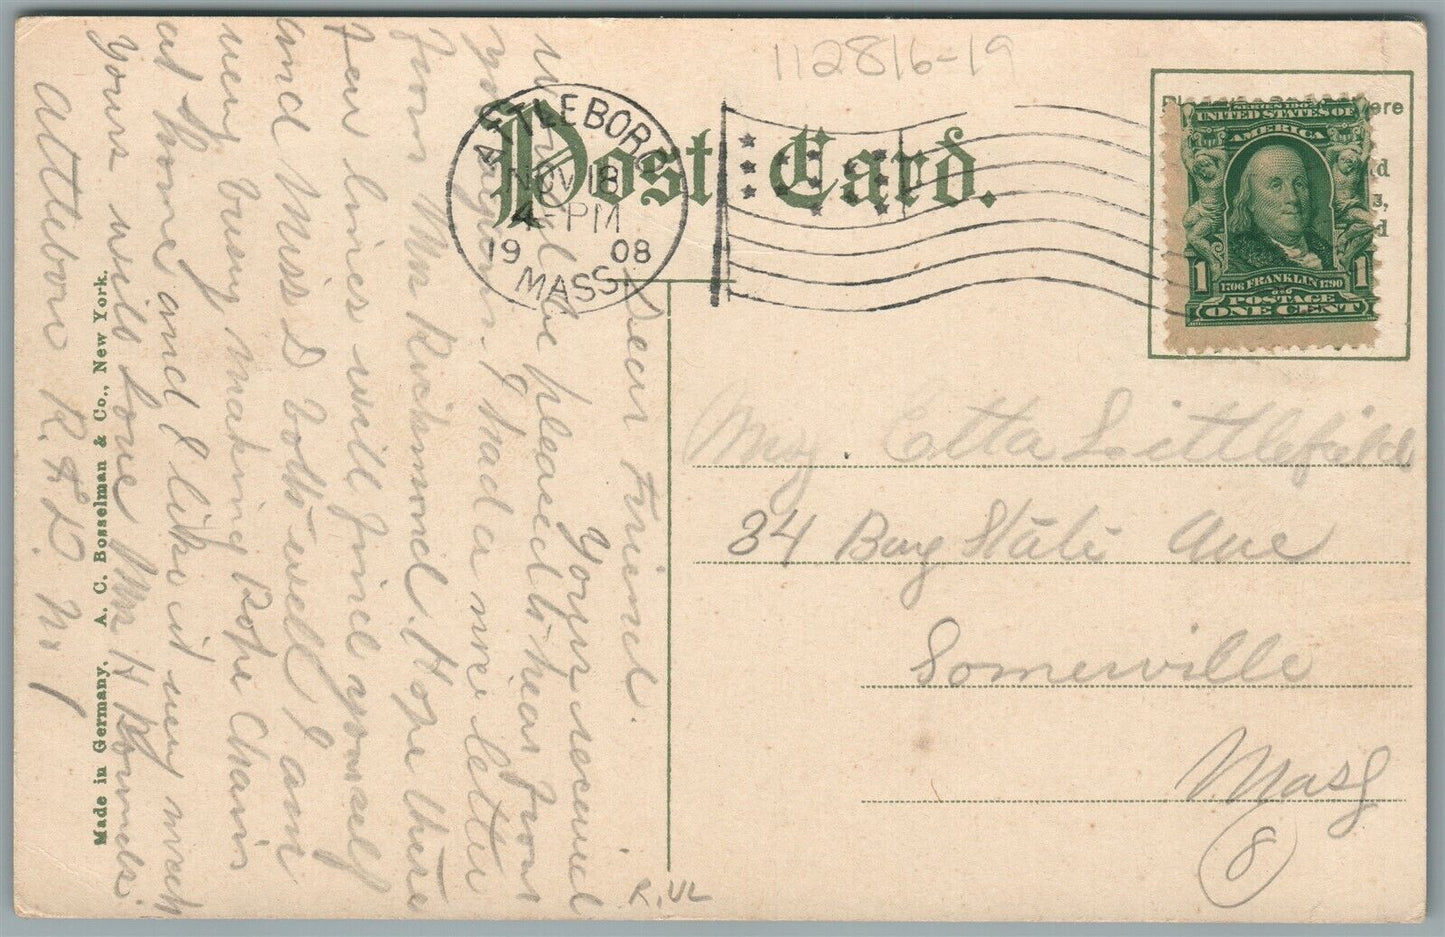 112816-19
Post Card.
ATTLEBORO
NOV 18
4-PM
19 08
MASS.
SERIES 1902
UNITED STATES OF
AMERICA
1 FRANKLIN 1
1706 1790
POSTAGE
ONE CENT
ere
d
3,
d
Etta Littlefield
34 Bay State Ave
Somerville
Mass
8
R. UL
Dear Friend.
Yours received
would be pleased to hear from
you again. I had a nice letter
from Mrs Richmond. Hope these
few lines will find yourself
and Miss D both well I am
very busy making Rope Chain
at home and I like it very much
yours with love Mrs H
Attleboro R.F.D. No 1
Made in Germany. A. C. Bosselman & Co., New York.